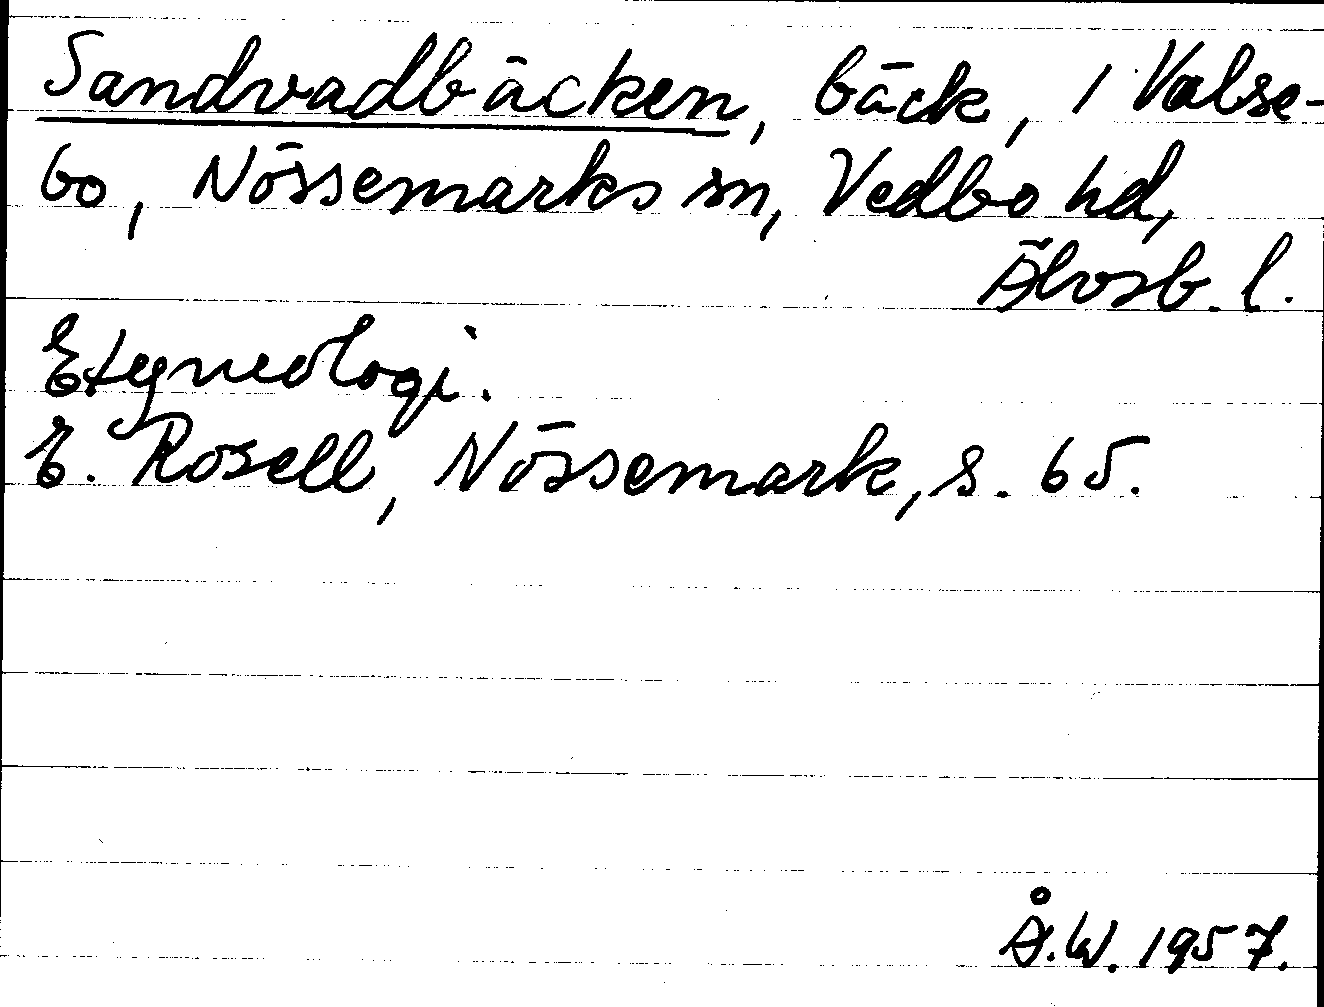 Sandvadbäcken, bäck, 1 Valse-
bo, Nössemarks sn, Vedbo hd,
Älvsb. l.
Etymologi.
E. Rosell, Nössemark, s. 65.
Å.W. 1957.